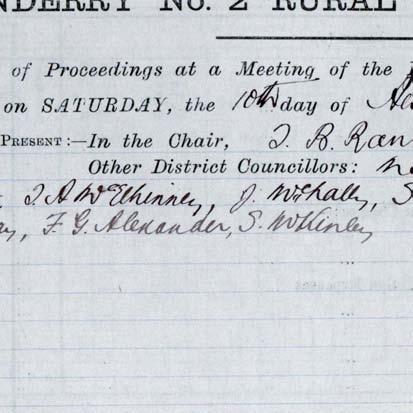 NDERRY No. 2 RURAL
of Proceedings at a Meeting of the
on SATURDAY, the 10th day of
PRESENT:—In the Chair, J. R. Ran
Other District Councillors:
J A McElhinney, J. McNally, S
F. G. Alexander, S. McKinley